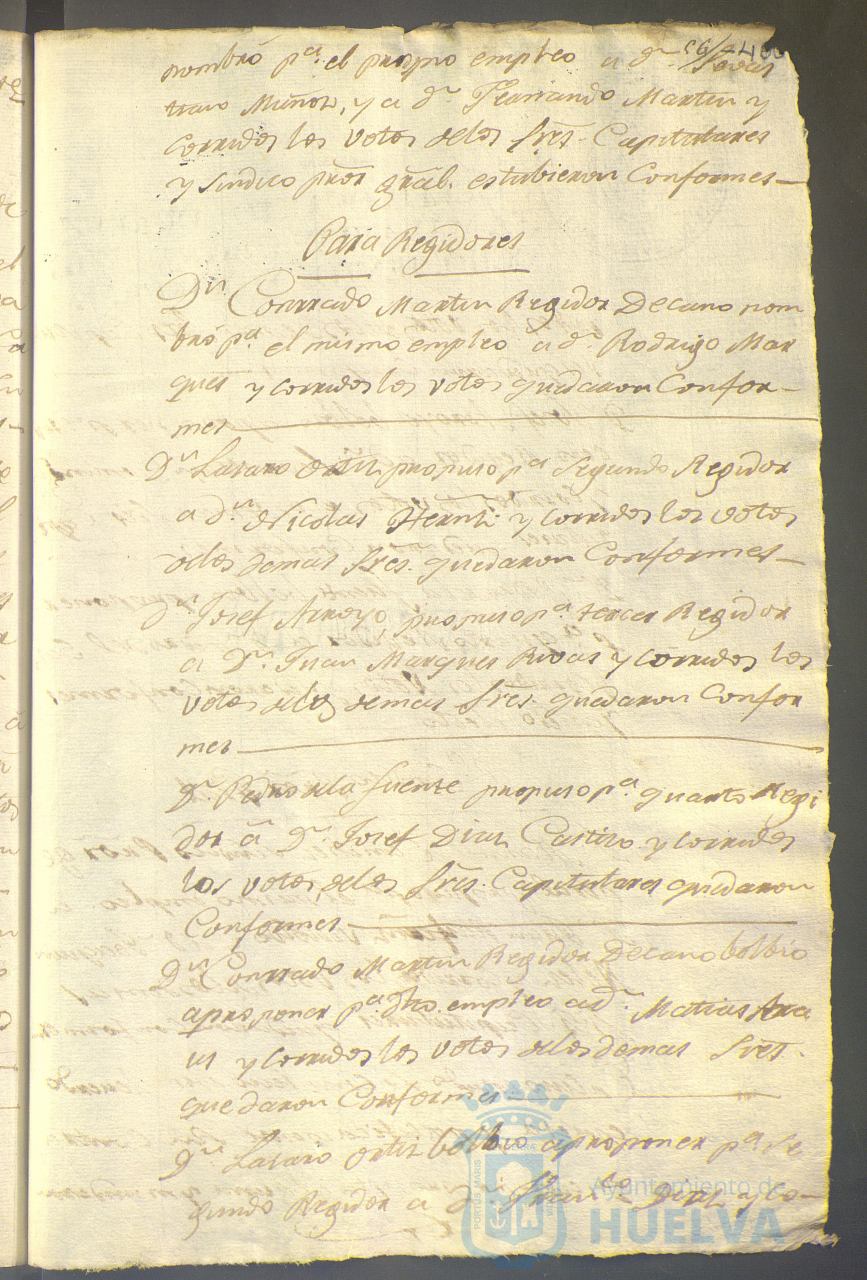 nombró pª. el propio empleo a dn. Sevas
tian Muñoz, y a dn. Fernando Martin y
corridos los votos delos Sres. Capitulares
y Sindico pror. gral. estubieron Conformes—
Para Regidores
Dn. Conrrado Martin Regidor Decano nom
bró pª. el mismo empleo a dn. Rodrigo Mar
ques y corridos los votos quedaron Confor—
mes
Dn. Lazaro Ortiz propuso pª. Segundo Regidor
a dn. Nicolas Hernz. y corridos los votos
delos demas Sres. quedaron Conformes—
dn. Josef Arroyo, propuso pª. tercer Regidor
a Dn. Juan Marques Rivas y corridos los
votos delos demas Sres. quedaron Confor
mes
Dn. Pedro dela Fuente propuso pª. quarto Regi
dor á Dn. Josef Diaz Castizo y corridos
los votos delos Sres. Capitulares quedaron
Conformes
Dn. Conrrado Martin Regidor Decano bolbio
a proponer pª. dho. empleo a dn. Matias
y corridos los votos delos demas Sres.
quedaron Conformes
Dn. Lazaro Ortiz bolbio a proponer pª. Se
gundo Regidor a dn. Diaz y co—
Ayuntamiento de
HUELVA